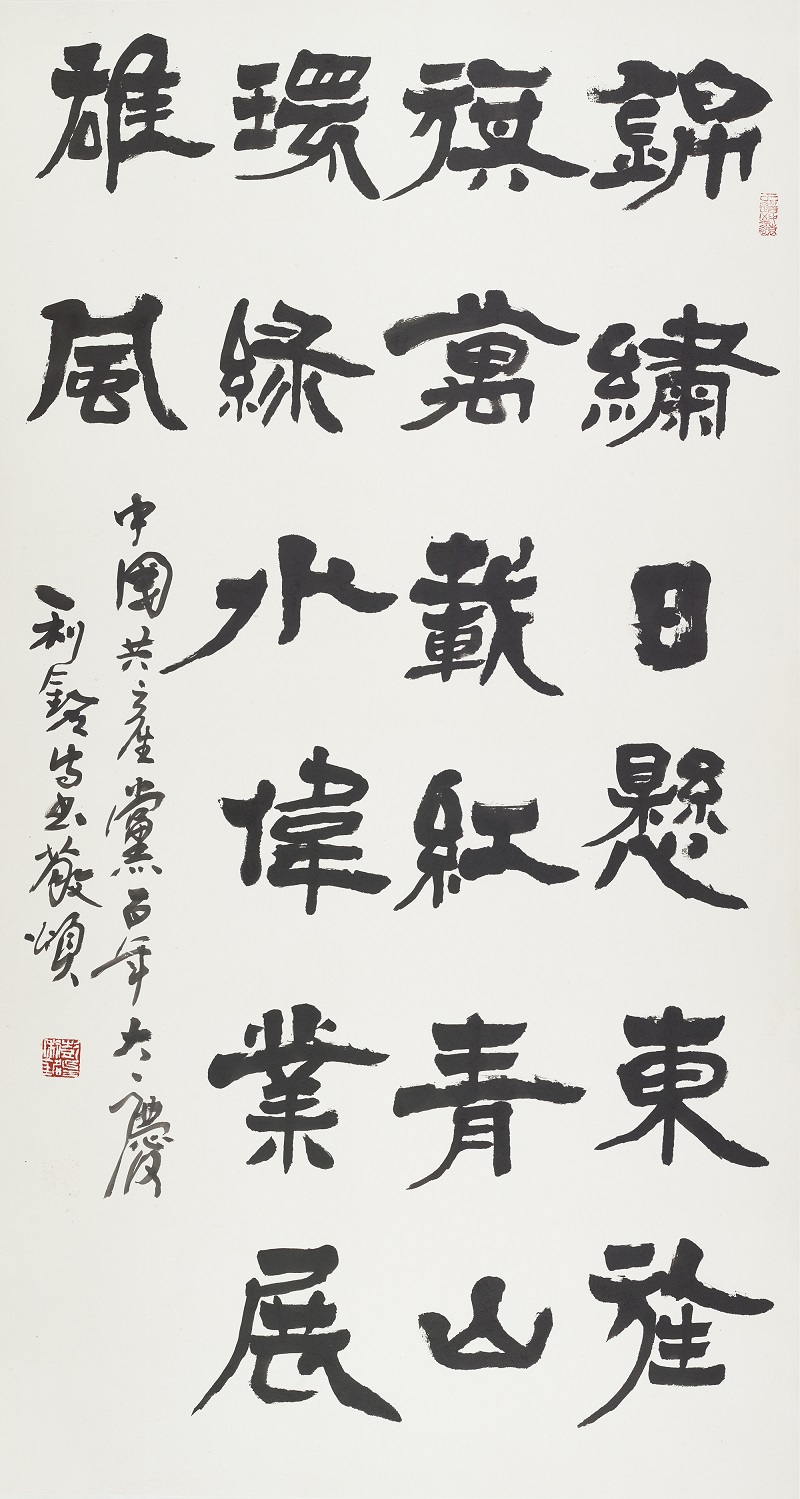 錦繡日懸東旌
旗萬載紅青山
環綠水偉業展
雄風
中國共產黨百年大慶
利書敬頌